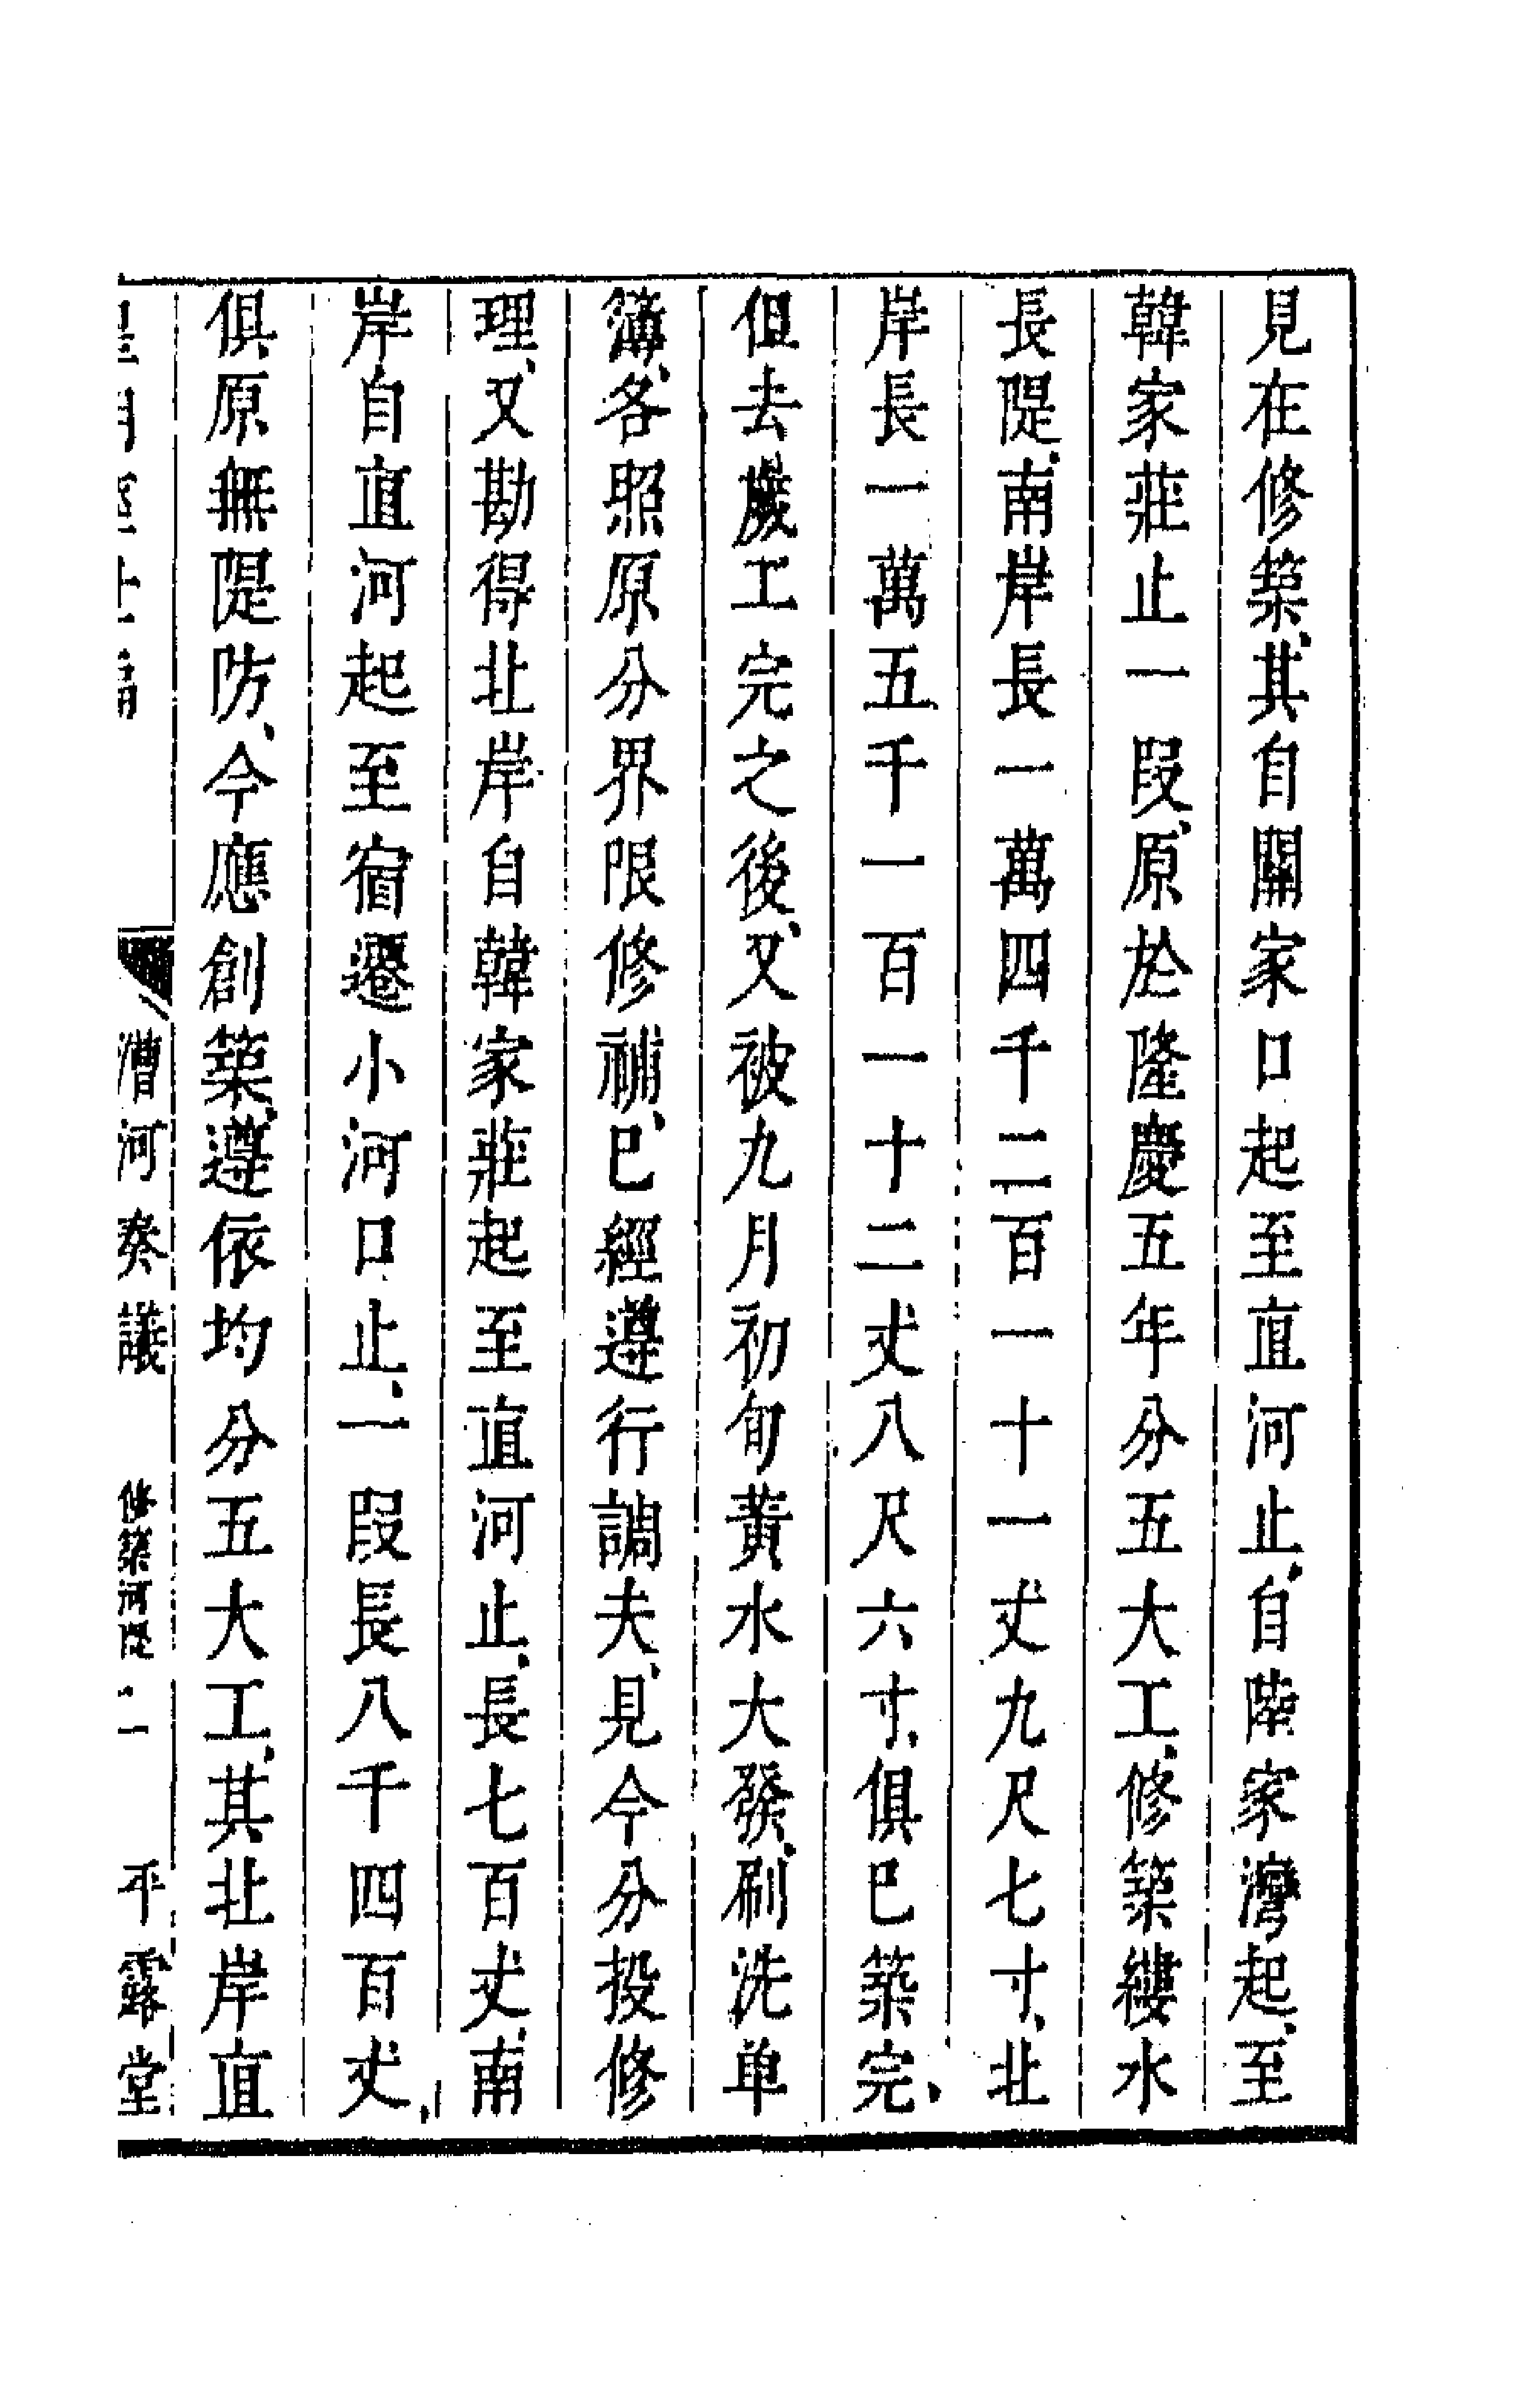 見在修築、其自關家口起至直河止、自陸家灣起、至
韓家莊止一段、原於隆慶五年分五大工、修築縷水
長隄、南岸長一萬四千二百一十一丈九尺七寸、北
岸長一萬五千一百一十二丈八尺六寸、俱已築完、
但去歲工完之後、又被九月初旬黃水大發、刷洗单
簿、各照原分界限修補、已經遵行調夫、見今分投修
理、又勘得北岸自韓家莊起至直河止、長七百丈、南
岸自直河起至宿遷小河口止、一段長八千四百丈、
俱原無隄防、今應創築、遵依均分五大工、其北岸直
漕河奏議 修築河隄 平露堂